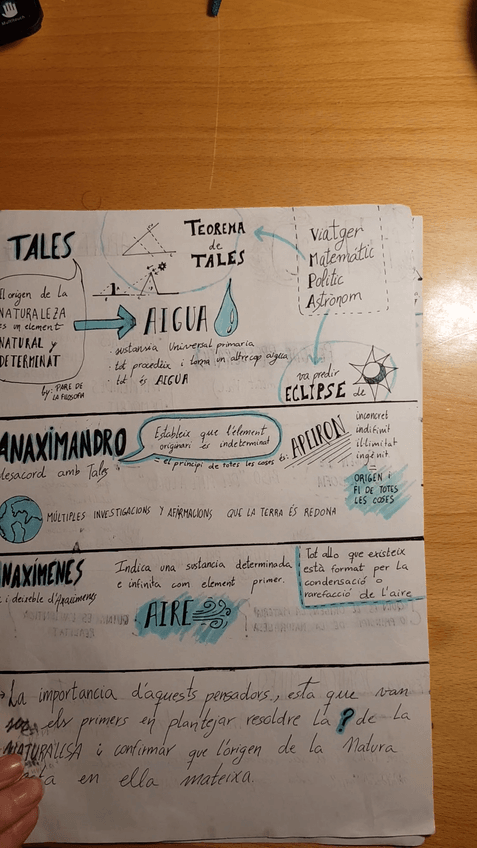 TALES
TEOREMA
de
TALES
Viatger
Matemàtic
Polític
Astrònom
El origen de la
NATURALEZA
es un element
NATURAL y
DETERMINAT
by: PARE DE
LA FILOSOFIA
AIGUA
· sustansia Universal primaria
· tot procedix i torna un altre cop aigua
· tot és AIGUA
va predir
ECLIPSE de
ANAXIMANDRO
desacord amb Tales
Estableix que l'element
originari és indeterminat
= el principi de totes les coses és:
APEIRON
inconcret
indifinit
il·limitat
ingènit
=
ORIGEN i
FI DE TOTES
LES COSES
MÚLTIPLES INVESTIGACIONS Y AFARMACIONS QUE LA TERRA ÉS REDONA
NAXÍMENES
i deixeble d'Anaxímenes
Indica una sustancia determinada
e infinita com element primer.
AIRE
Tot allo que existeix
està format per la
condensació o
rarefacció de l'aire
La importancia d'aquests pensadors, esta que van
ser els primers en plantejar resoldre la ? de la
NATURALESA i confirmar que l'origen de la Natura
està en ella mateixa.